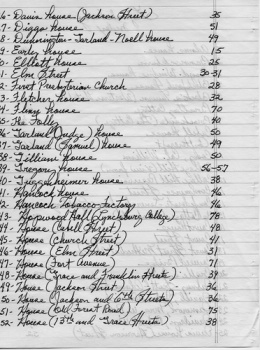 6- Davis House (Jackson Street) 35
7- Diggs House 51
8- Dunnington-Garland-Noell House 49
9- Early House 15
0- Elliott House 25
1- Elm Street 30-31
2- First Presbyterian Church 28
3- Fletcher House 32
4- House 70
35- Folly 40
36- Garland (Judge) House 50
37- Garland (Samuel) House 49
38- Gilliam House 50
39- Gregory House 56-57
40- Guggenheimer House 38
41- Hancock House 46
42- Hancock Tobacco Factory 46
43- Hopwood Hall (Lynchburg College) 78
44- House (Cabell Street) 48
45- House (Church Street) 41
46- House (Elm Street) 31
47- House (Fort Avenue) 71
48- House (Grace and Franklin Streets) 39
49- House (Jackson Street) 36
50- House (Jackson and 6th Streets) 36
51- House (Old Forest Road) 75
52- House (13th and Grace Streets) 38